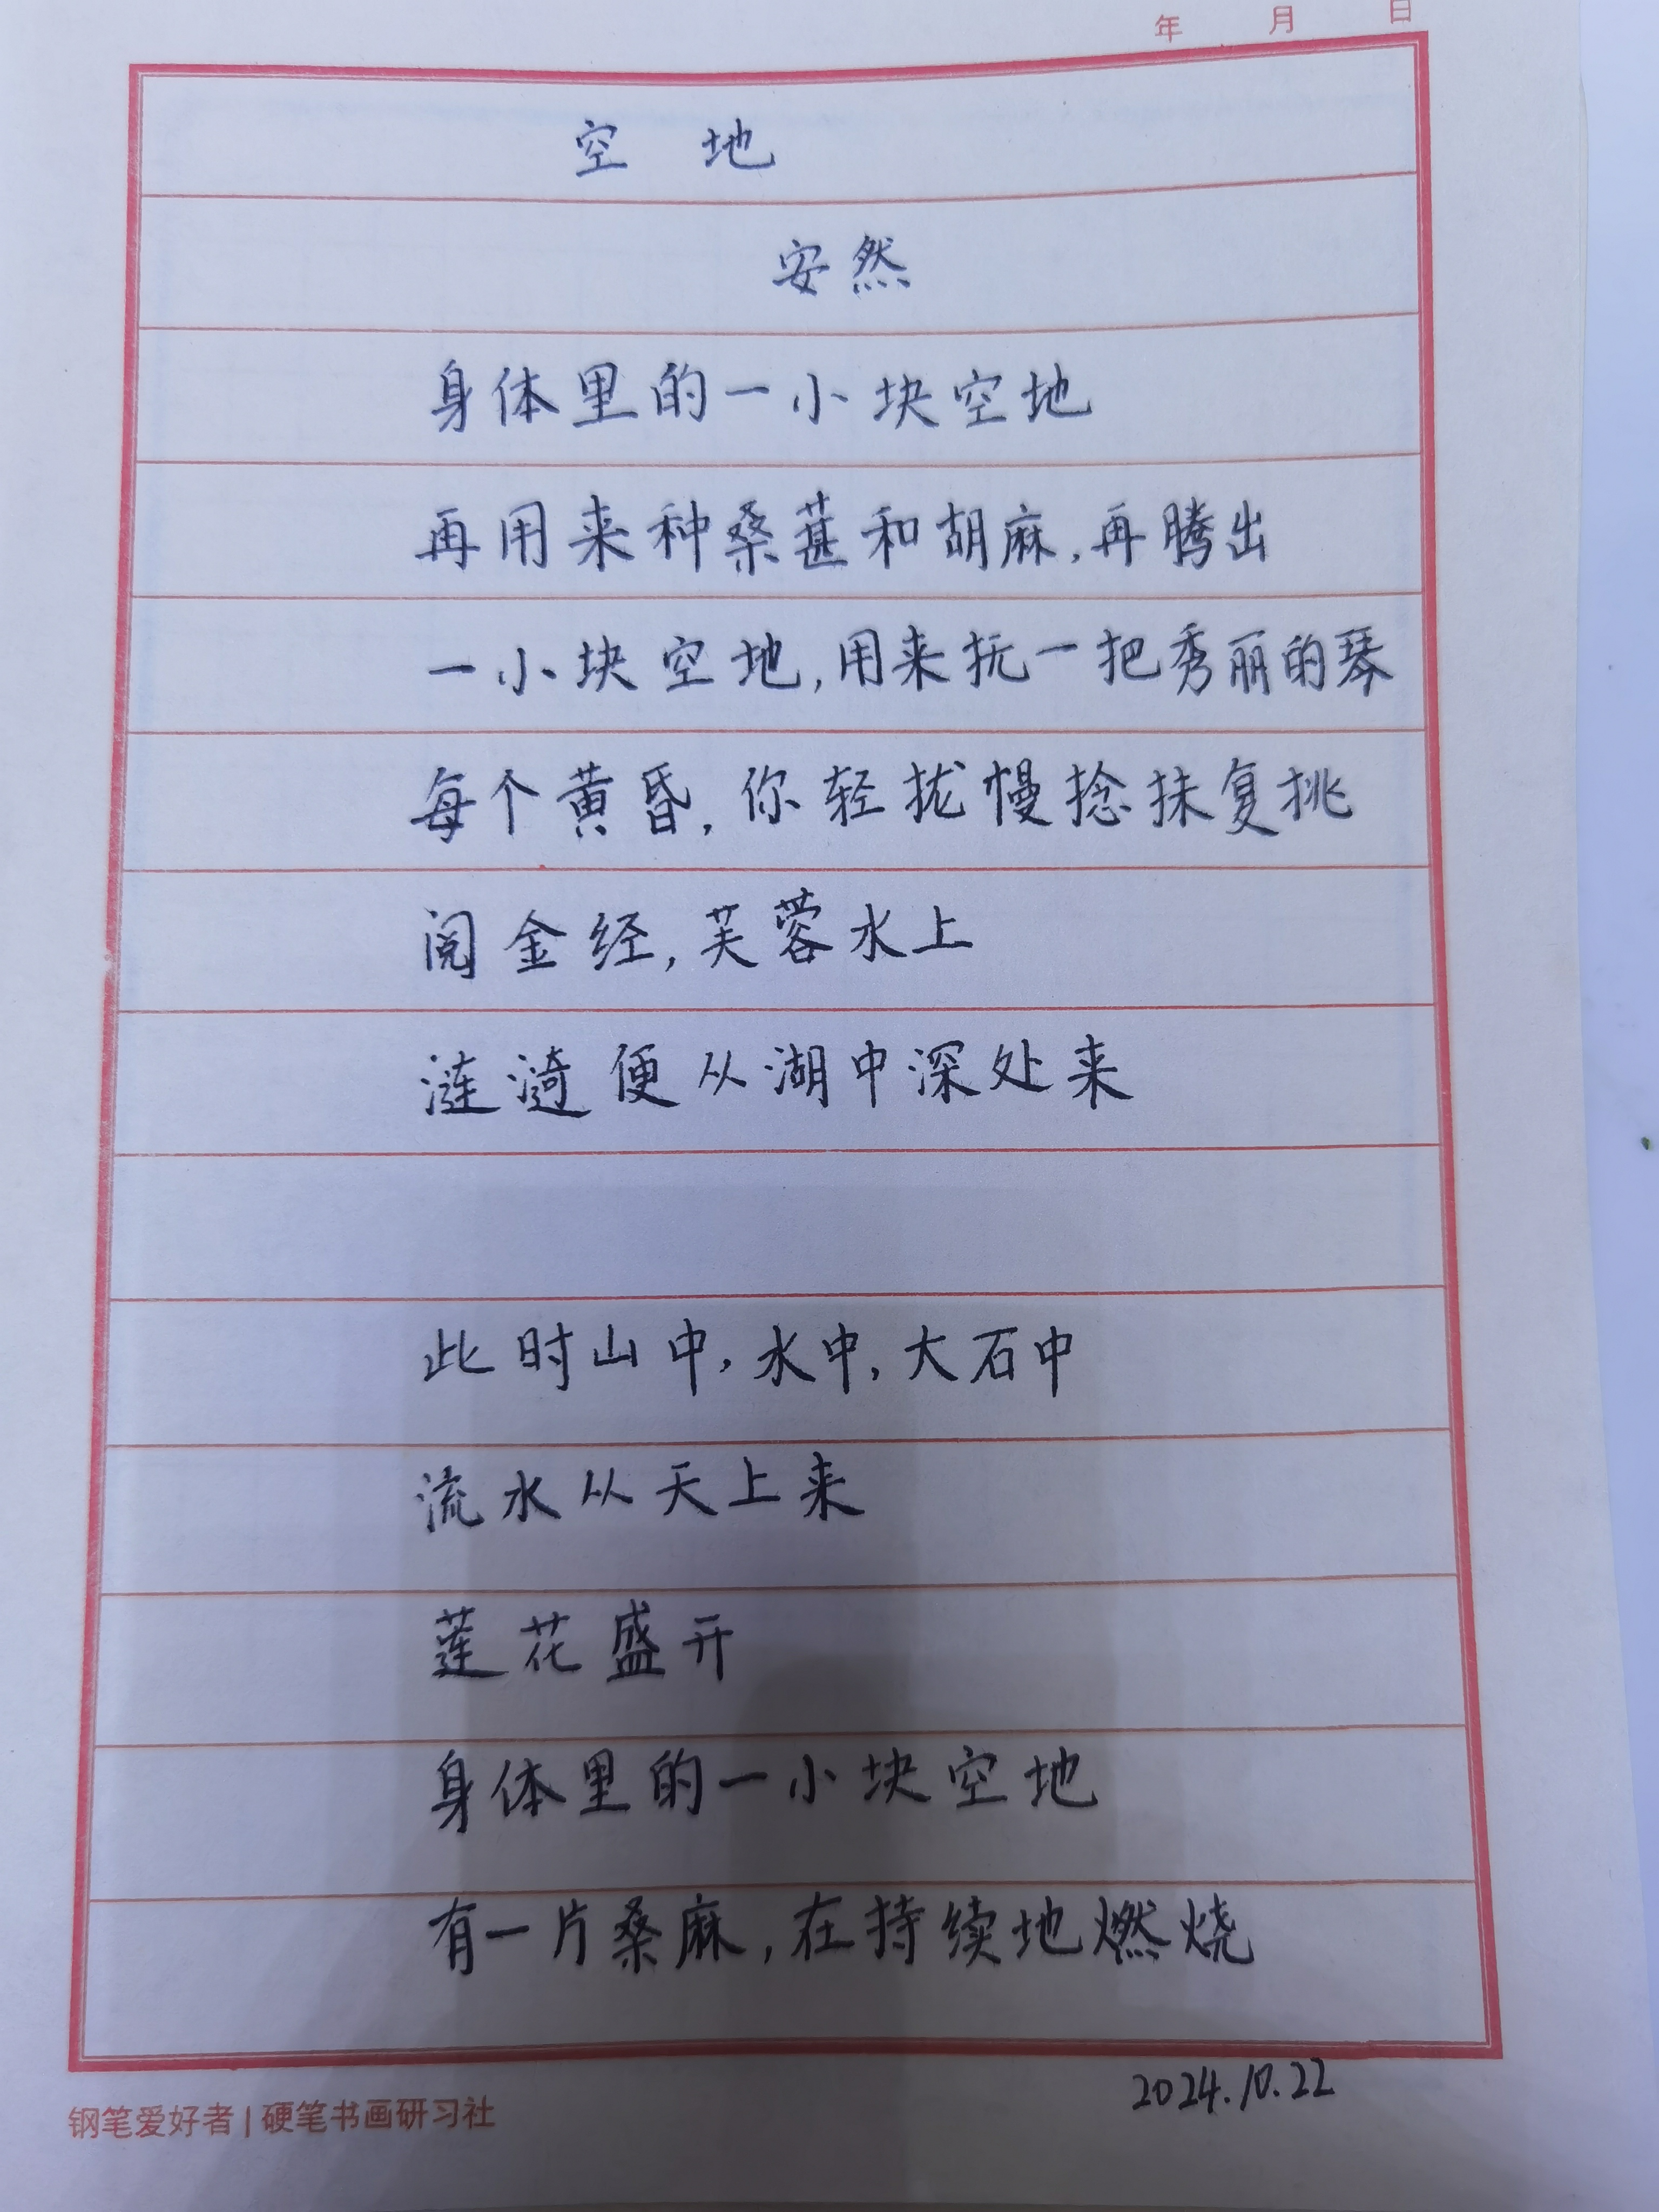 年 月 日
空 地
安然
身体里的一小块空地
再用来种桑葚和胡麻,再腾出
一小块空地,用来抚一把秀丽的琴
每个黄昏,你轻拢慢捻抹复挑
阅金经,芙蓉水上
涟漪便从湖中深处来
此时山中,水中,大石中
流水从天上来
莲花盛开
身体里的一小块空地
有一片桑麻,在持续地燃烧
2024.10.22
钢笔爱好者|硬笔书画研习社